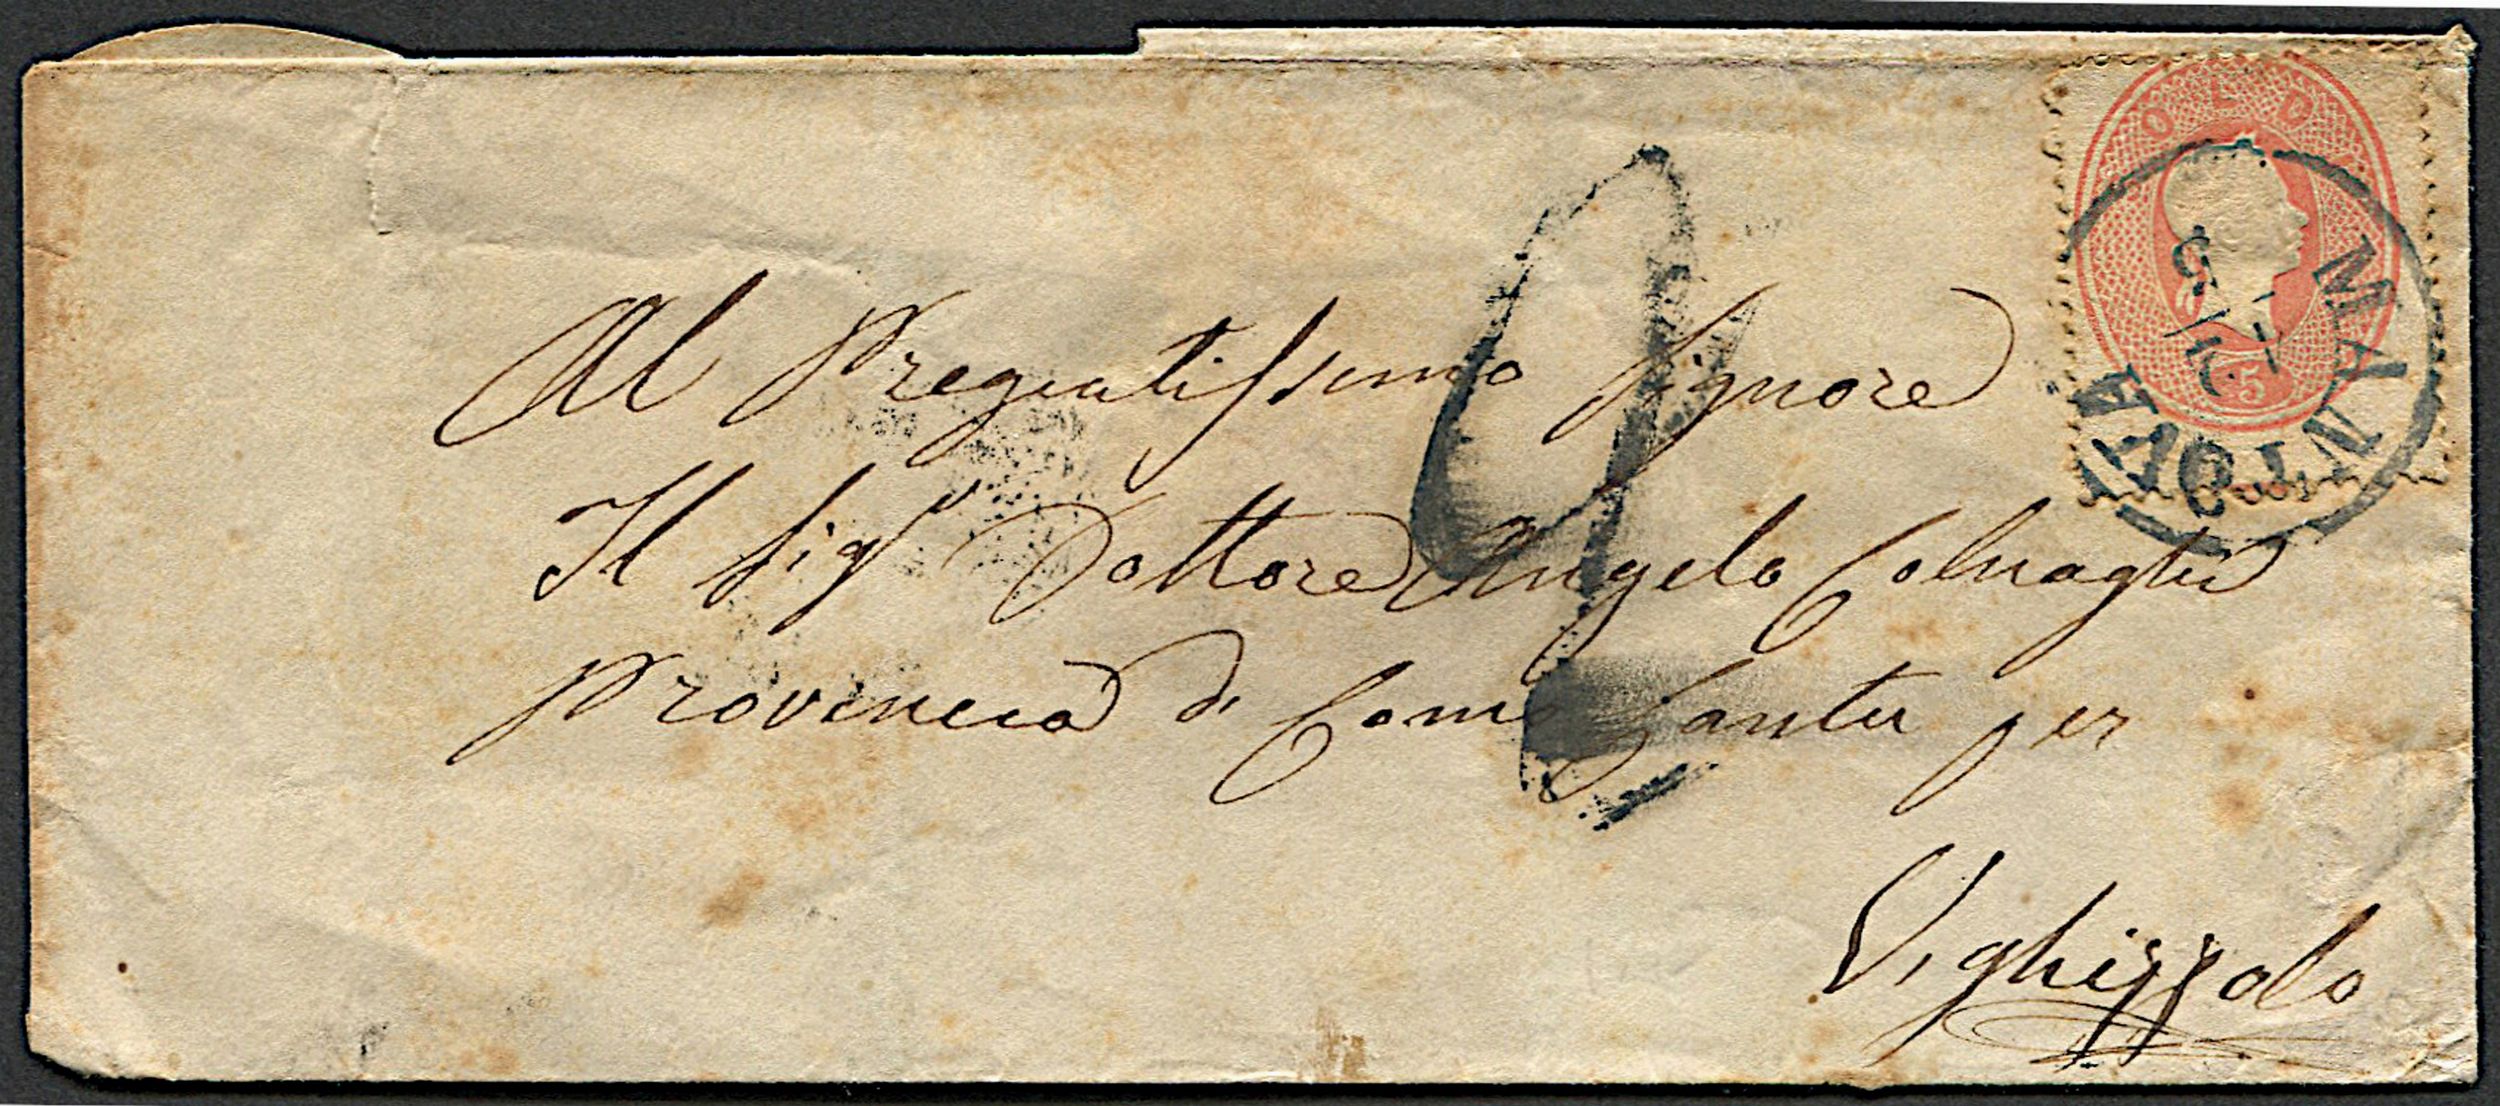 SOLDI
5
MANTOVA
5/12
2
Al Pregiatissimo Signore
Il Sigr Dottore Angelo Colnaghi
Provincia di Como Cantu per
Vighizzolo